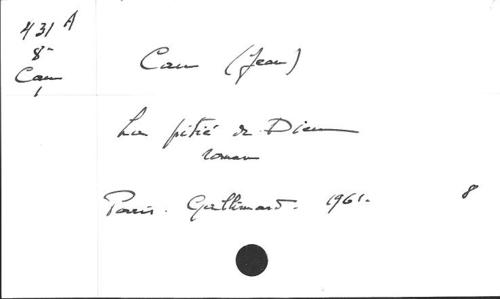 431 A
8-
Cau
1
Cau (Jean)
La pitié de Dieu
roman
Paris. Gallimard. 1961.
8